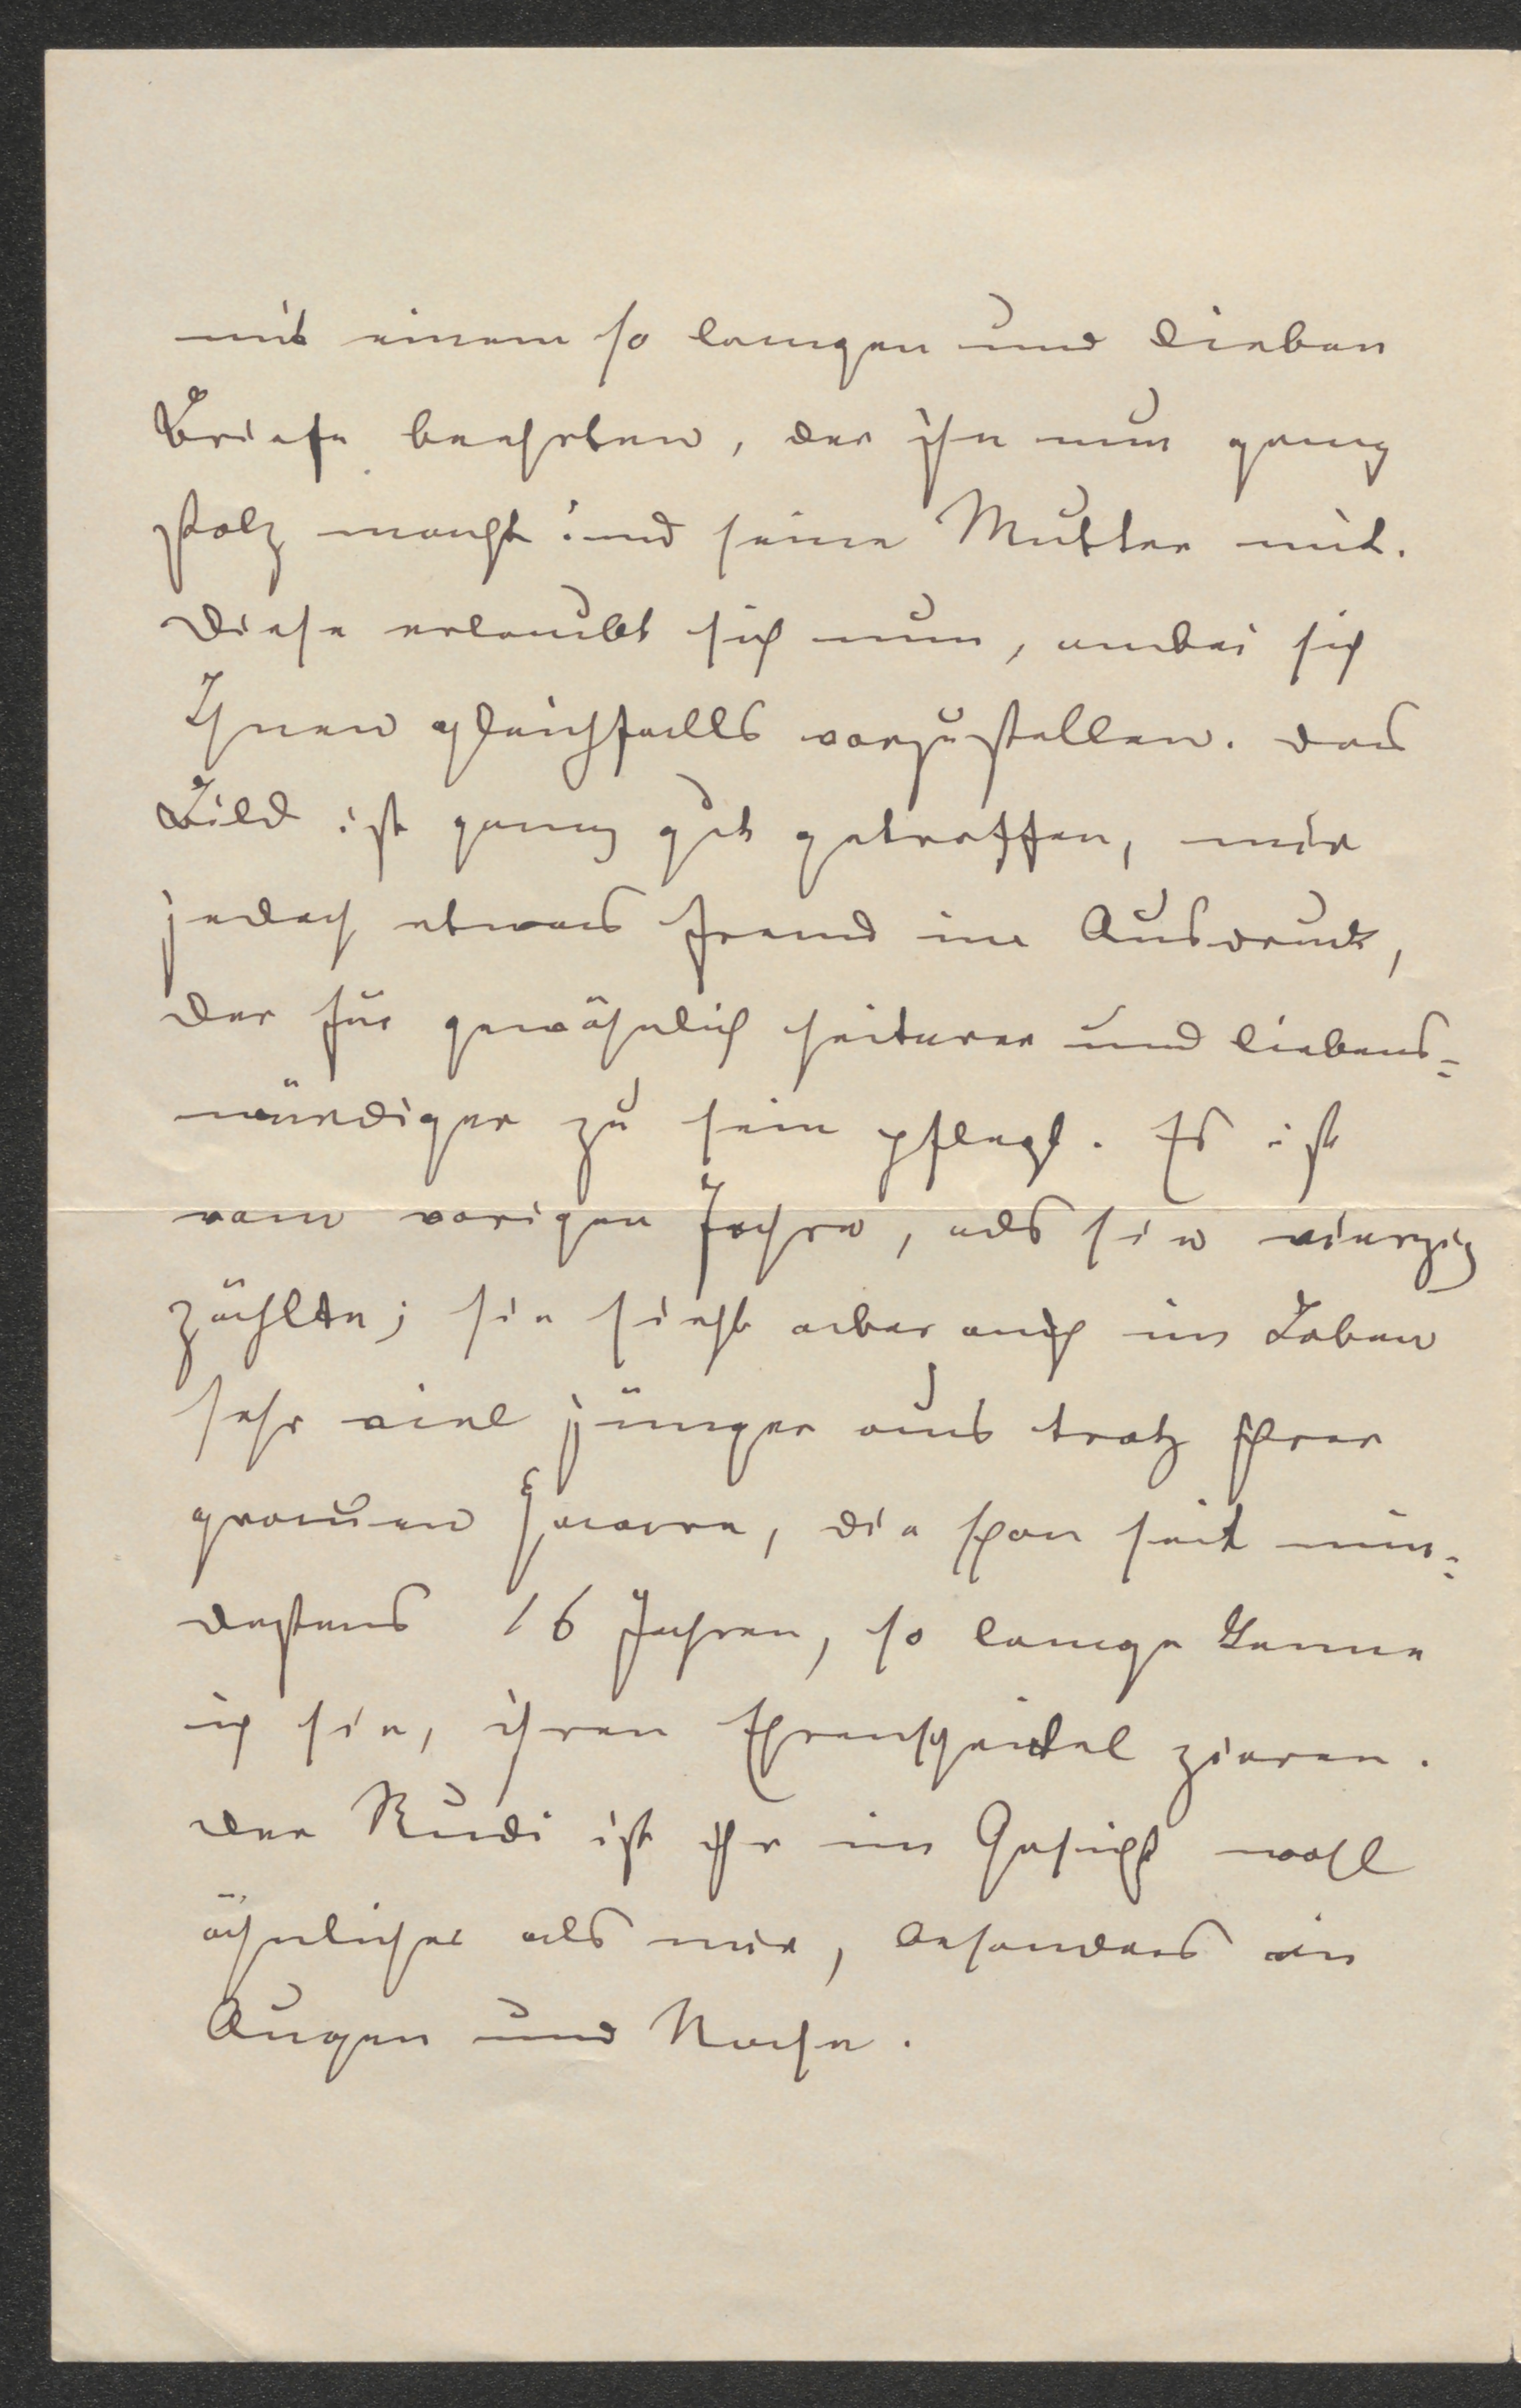 mit einem so langen und lieben
Briefe beehrten, der ihn nun ganz
stolz macht und seine Mutter mit.
Diese erlaubt sich nun, anbei sich
Ihnen gleichfalls vorzustellen. Das
Bild ist ganz gut getroffen, mir
jedoch etwas fremd im Ausdruck,
der für gewöhnlich heiterer und liebens-
würdiger zu sein pflegt. Es ist
vom vorigen Jahre, als sie vierzig
zählte; sie sieht aber auch im Leben
sehr viel jünger aus trotz ihrer
grauen Haare, die schon seit min-
destens 16 Jahren, so lange kenne
ich sie, ihren Ehrenscheitel zieren.
Der Rudi ist ihr im Gesicht wohl
ähnlicher als mir, besonders in
Augen und Nase.